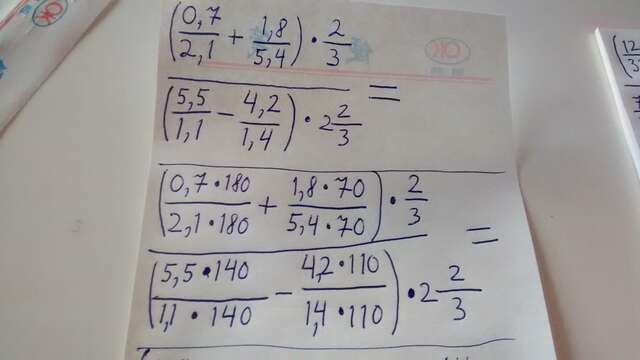 (0,7/2,1 + 1,8/5,4) · 2/3
=
(5,5/1,1 − 4,2/1,4) · 2 2/3
(0,7·180/2,1·180 + 1,8·70/5,4·70) · 2/3
=
(5,5·140/1,1·140 − 4,2·110/1,4·110) · 2 2/3
OK
(12